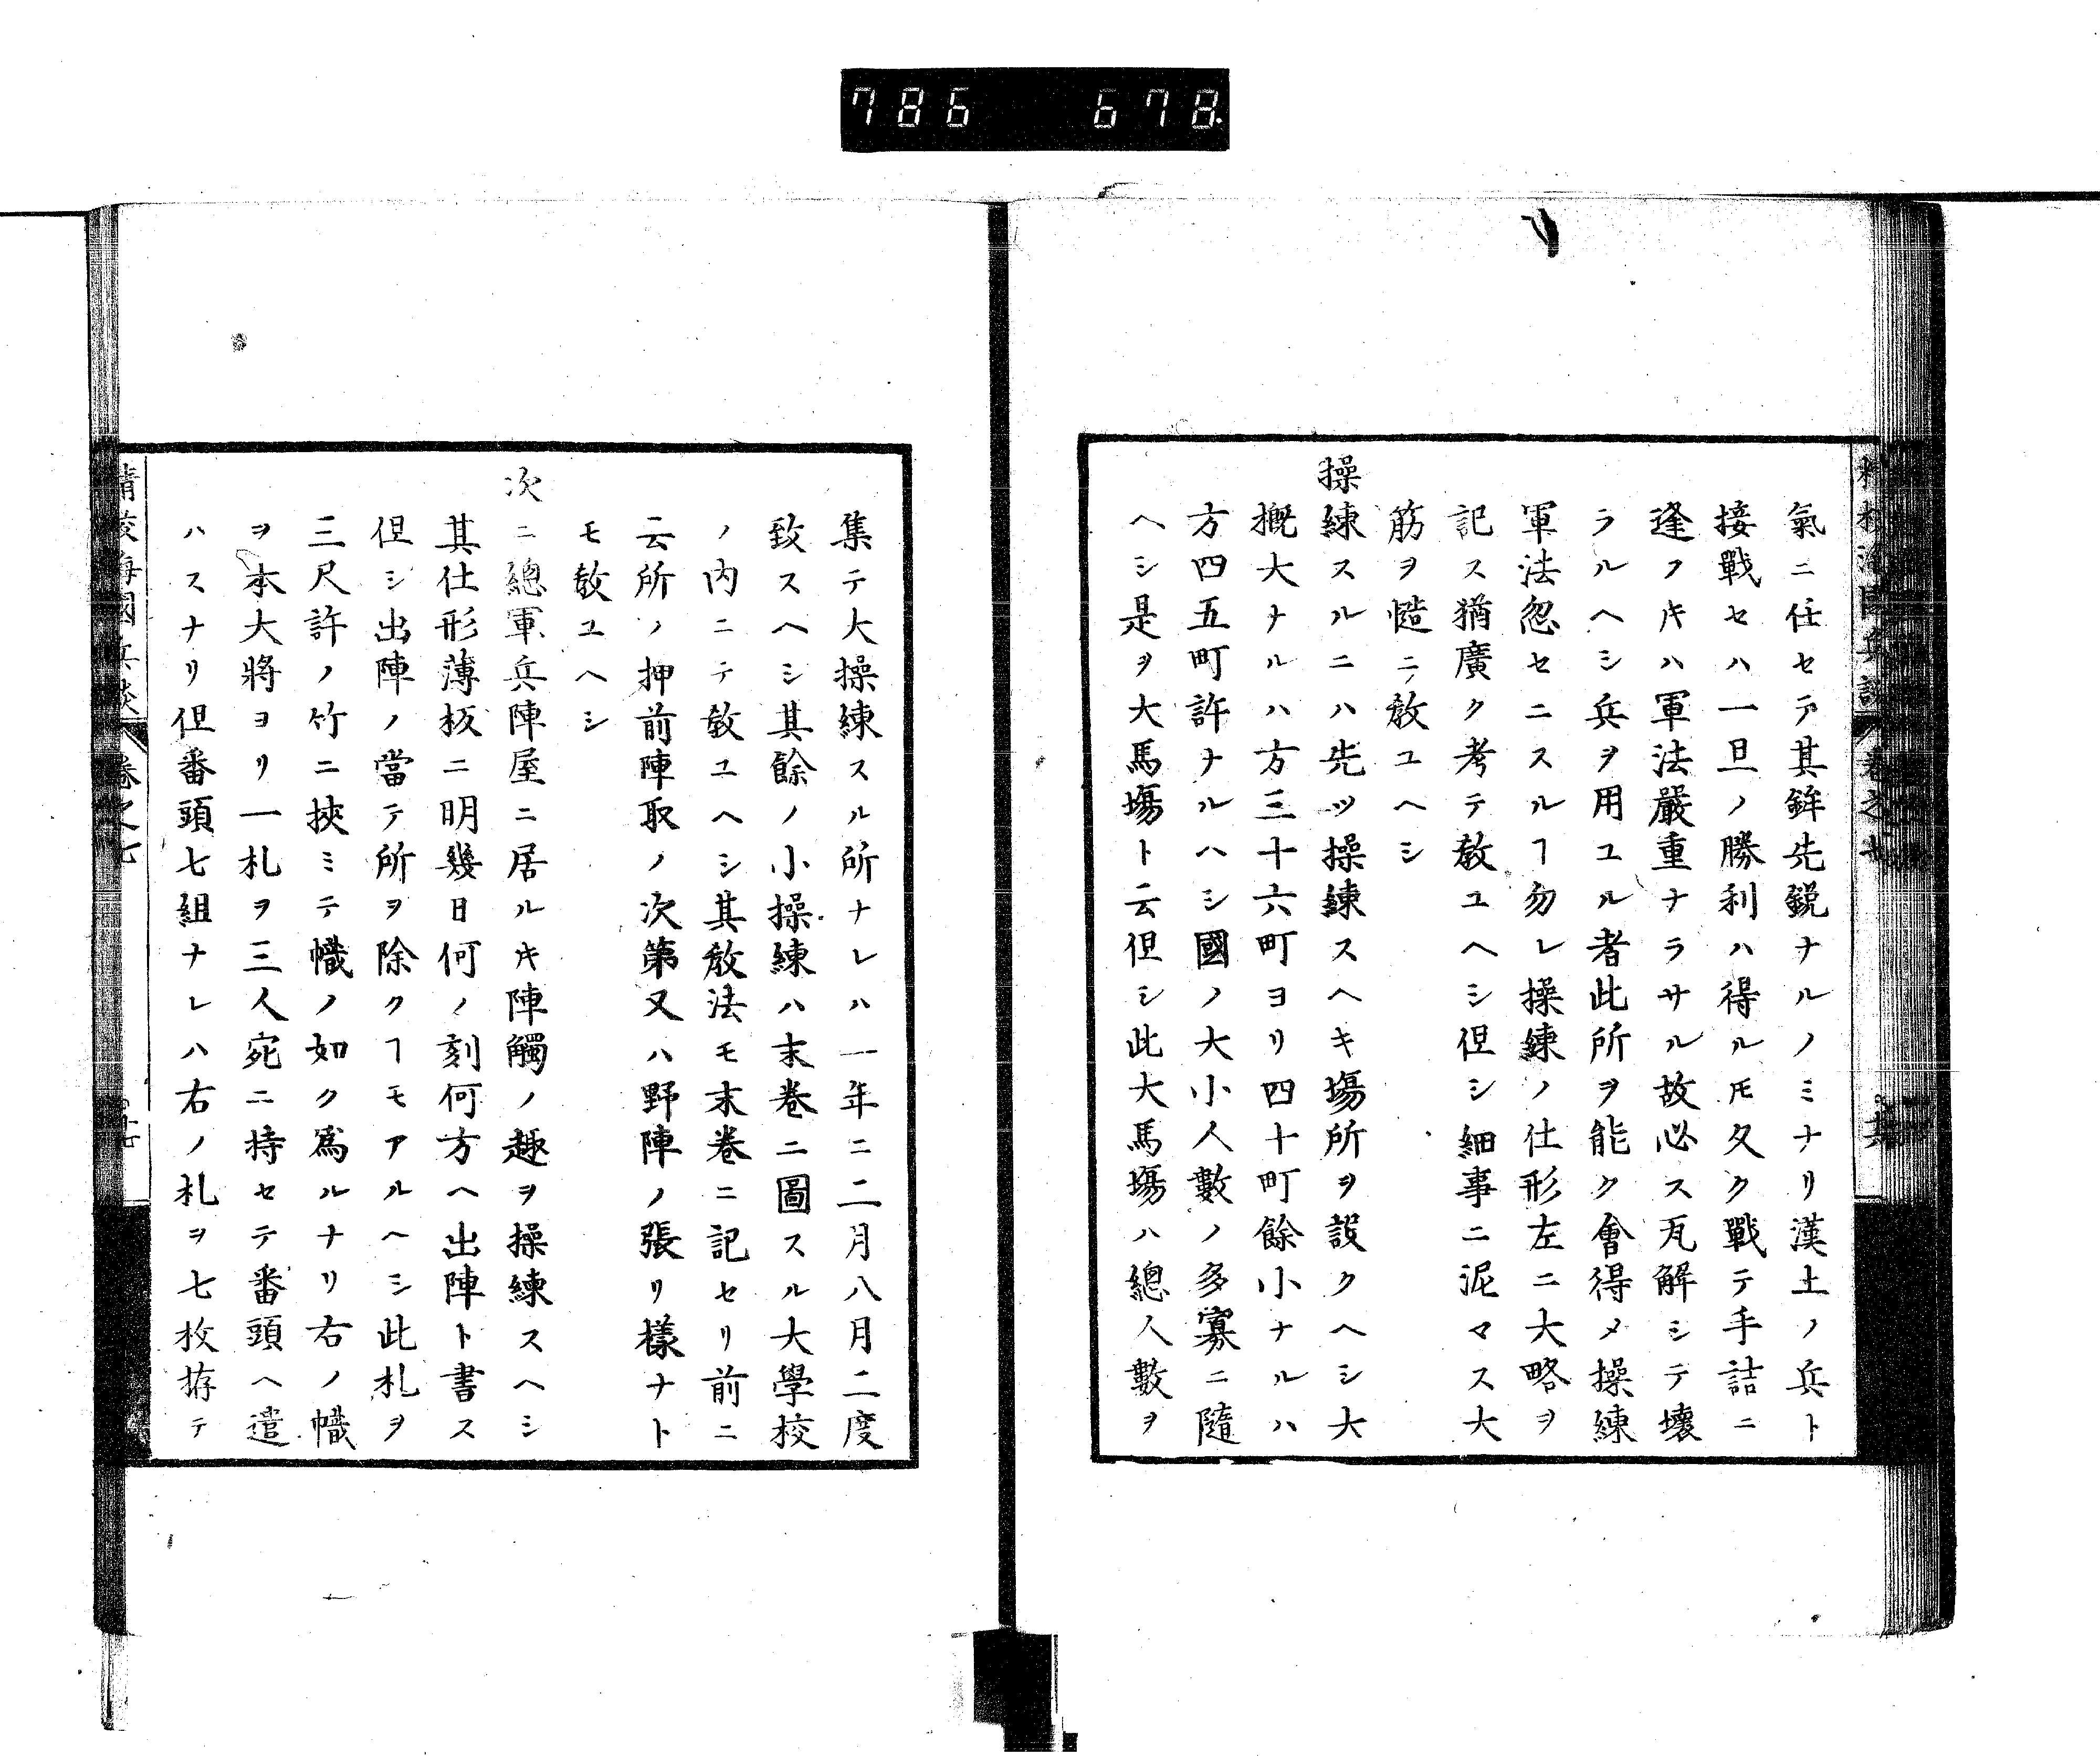 786 678
精校海國兵談 卷之七 共
氣ニ任セテ其鉾先鋭ナルノミナリ漢土ノ兵ト
接戰セハ一旦ノ勝利ハ得ルㇳモ久ク戰テ手詰ニ
逢フ𪜈ハ軍法嚴重ナラサル故必ス瓦解シテ壞
ラルヘシ兵ヲ用ユル者此所ヲ能ク會得メ操練
軍法忽セニスルヿ勿レ操練ノ仕形左ニ大略ヲ
記ス猶廣ク考テ敎ユヘシ但シ細事ニ泥マス大
筋ヲ慥ニ敎ユヘシ
操練スルニハ先ッ操練スヘキ塲所ヲ設クヘシ大
概大ナルハ方三十六町ヨリ四十町餘小ナルハ
方四五町許ナルハシ國ノ大小人數ノ多寡ニ隨
ヘシ是ヲ大馬塲ト云但シ此大馬塲ハ總人數ヲ
集テ大操練スル所ナレハ一年ニ二月八月二度
致スヘシ其餘ノ小操練ハ末卷ニ圖スル大學校
ノ内ニテ敎ユヘシ其敎法モ末卷ニ記セリ前ニ
云所ノ押前陣取ノ次第又ハ野陣ノ張リ樣ナト
モ敎ユヘシ
次ニ總軍兵陣屋ニ居ルキ陣觸ノ趣ヲ操練スヘシ
其仕形薄板ニ明幾日何ノ刻何方ヘ出陣ト書ス
但シ出陣ノ當テ所ヲ除クヿモアルヘシ此札ヲ
三尺許ノ竹ニ挾ミテ幟ノ如ク爲ルナリ右ノ幟
ヲ本大將ヨリ一札ヲ三人宛ニ持セテ番頭ヘ遣
ハスナリ但番頭七組ナレハ右ノ札ヲ七枚拵テ
精校海國兵談 卷之七 十七